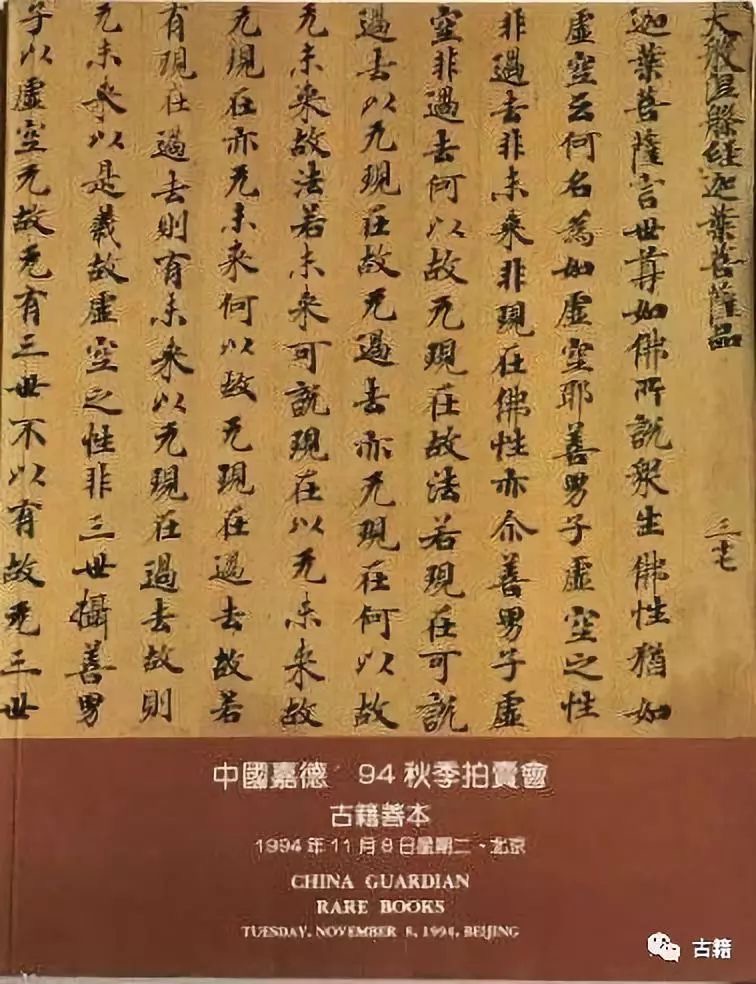 大般涅槃經迦葉菩薩品 三十七
迦葉菩薩言世尊如佛所說衆生佛性猶如
虛空云何名為如虛空耶善男子虛空之性
非過去非未來非現在佛性亦尒善男子虛
空非過去何以故无現在故法若現在可說
過去以无現在故无過去亦无現在何以故
无未來故法若未來可說現在以无未來故
无現在亦无未來何以故无現在過去故若
有現在過去則有未來以无現在過去故則
无未來以是義故虛空之性非三世攝善男
子以虛空无故无有三世不以有故无三世
中國嘉德 94秋季拍賣會
古籍善本
1994年11月8日星期二、北京
CHINA GUARDIAN
RARE BOOKS
TUESDAY, NOVEMBER 8, 1994, BEIJING
古籍